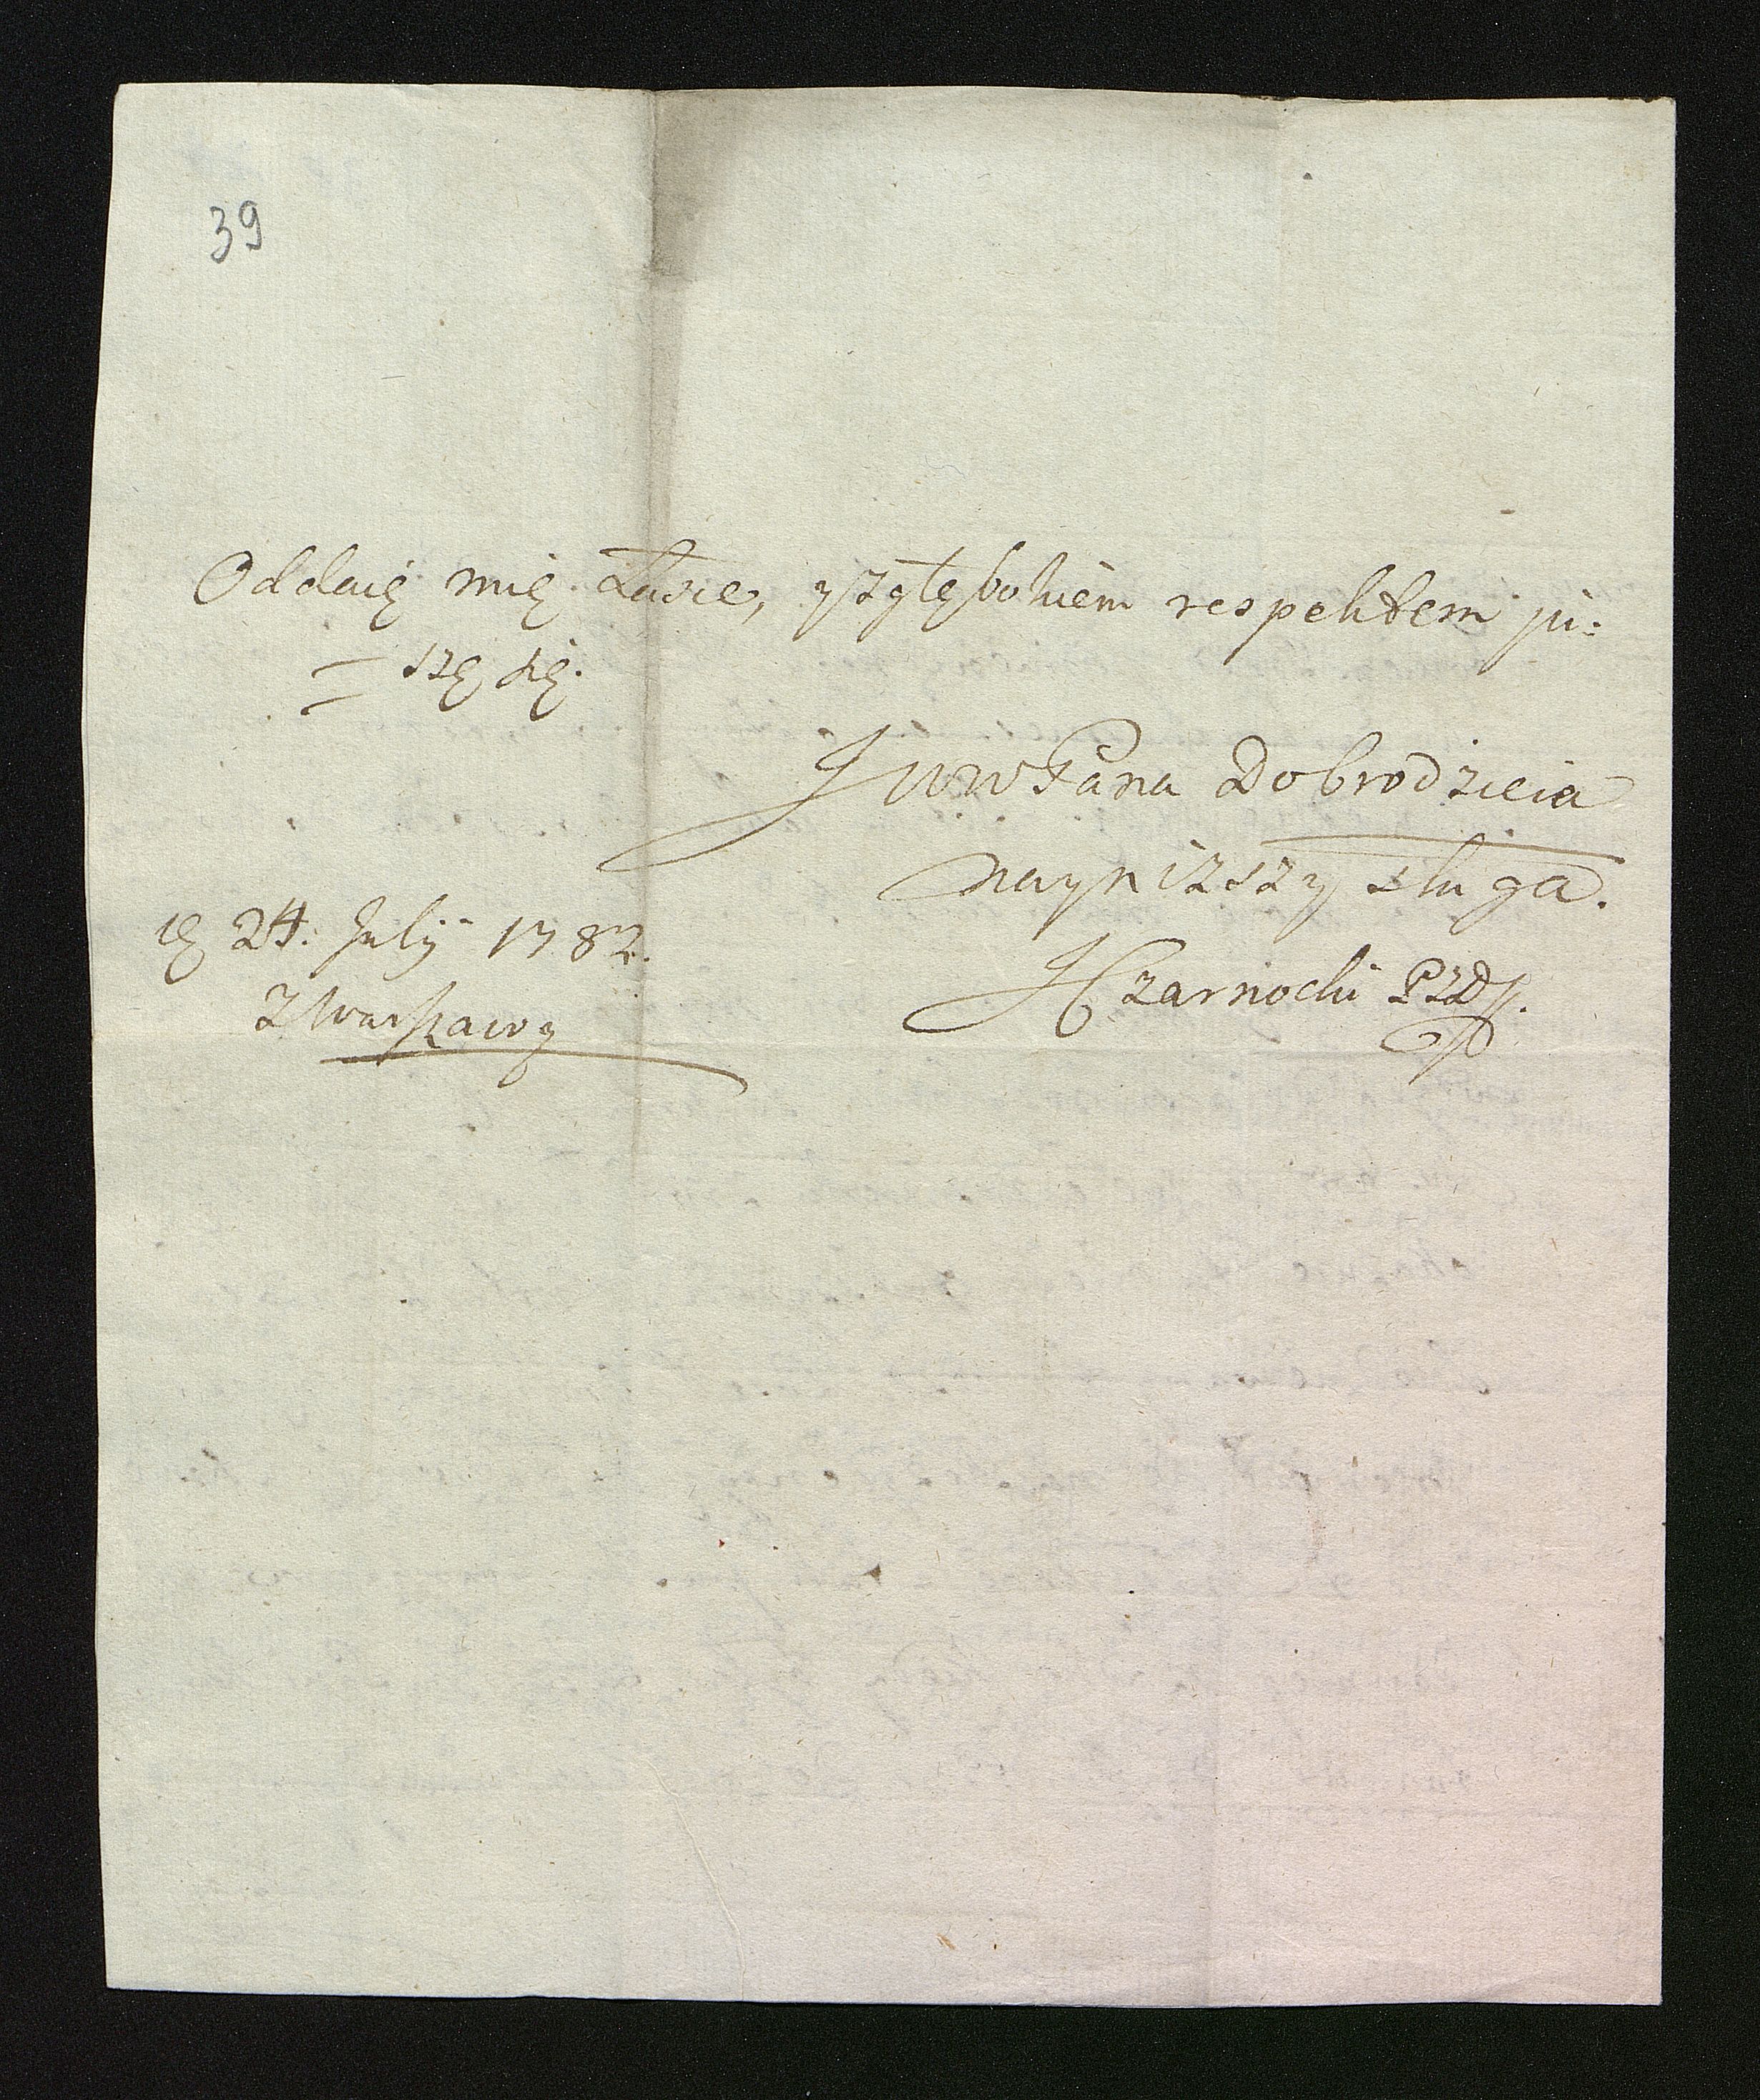 39
Oddaię mię Łasce, y z głębokiem respektem pi:
= szę się.
JWW Pana Dobrodzieia
naynizszy sługa.
JCzarnocki PZDP.
24. July 1782.
Z Warszawy